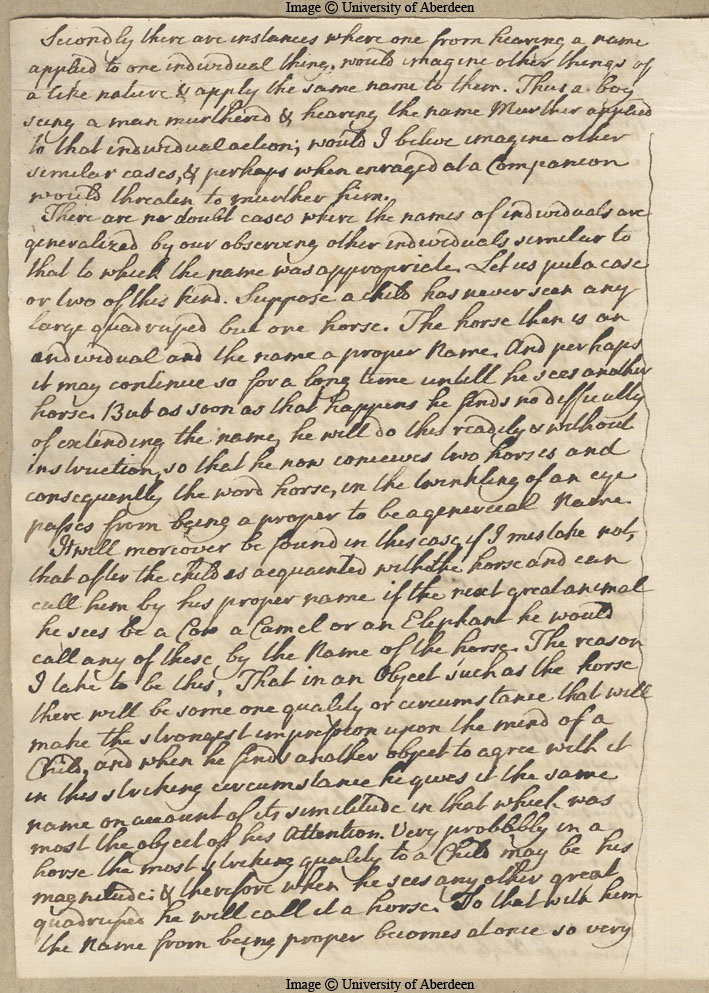 Image © University of Aberdeen
Secondly there are instances where one from hearing a name
applied to one individual thing, would imagine other things of
a like nature & apply the same name to them. Thus a boy
seing a man murthered & hearing the name Murther applied
to that individual action; would I belive imagine other
similar cases, & perhaps when enraged at a Companion
would threaten to murther him.
There are no doubt cases where the names of individuals are
generalized by our observing other individuals similar to
that to which the name was appropriate. Let us put a case
or two of this kind. Suppose a child has never seen any
large quadruped but one horse. The horse then is an
individual and the name a proper Name. And perhaps
it may continue so for a long time untill he sees another
horse. But as soon as that happens he finds no difficulty
of extending the name, he will do this readily & without
instruction, so that he now conceives two horses and
consequently the word horse, in the twinkling of an eye
passes from being a proper to be a general Name.
It will moreover be found in this case, if I mistake not,
that after the child is acquainted with the horse and can
call him by his proper name if the next great animal
he sees be a Cow a Camel or an Elephant he would
call any of these by the Name of the horse. The reason
I take to be this, That in an Object such as the horse
there will be some one quality or circumstance that will
make the strongest impression upon the mind of a
Child, and when he finds another object to agree with it
in this striking circumstance he gives it the same
name on account of its similitude in that which was
most the object of his Attention. Very probbbly in a
horse the most striking quality to a Child may be his
magnitude. & therefore when he sees any other great
quadruped he will call it a horse. So that with him
the Name from being proper becomes at once so very
Image © University of Aberdeen